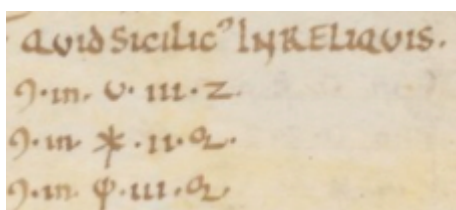 QUID SICILICꝰ IN RELIQUIS.
Ɔ·in·U·III·Z·
Ɔ·in·
Ɔ·in·φ·III·